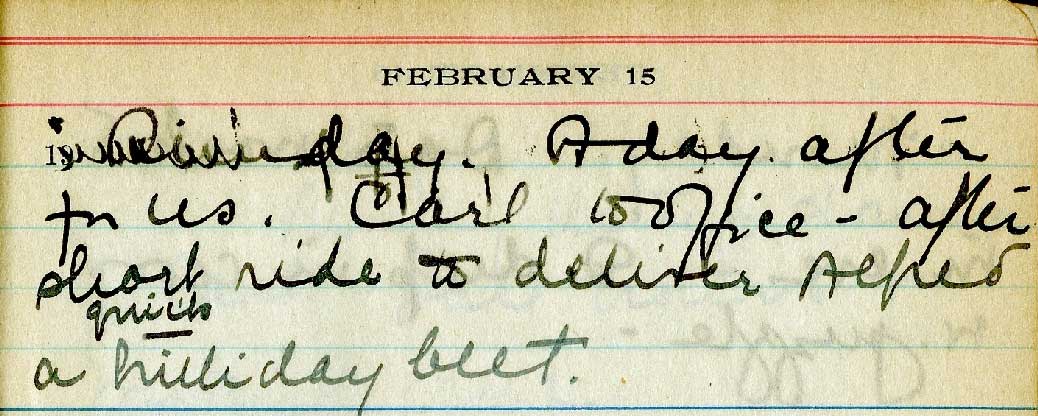 FEBRUARY 15
19 day. A day after
for us. Carl to office - after
short ride to deliver Alfred
a holliday